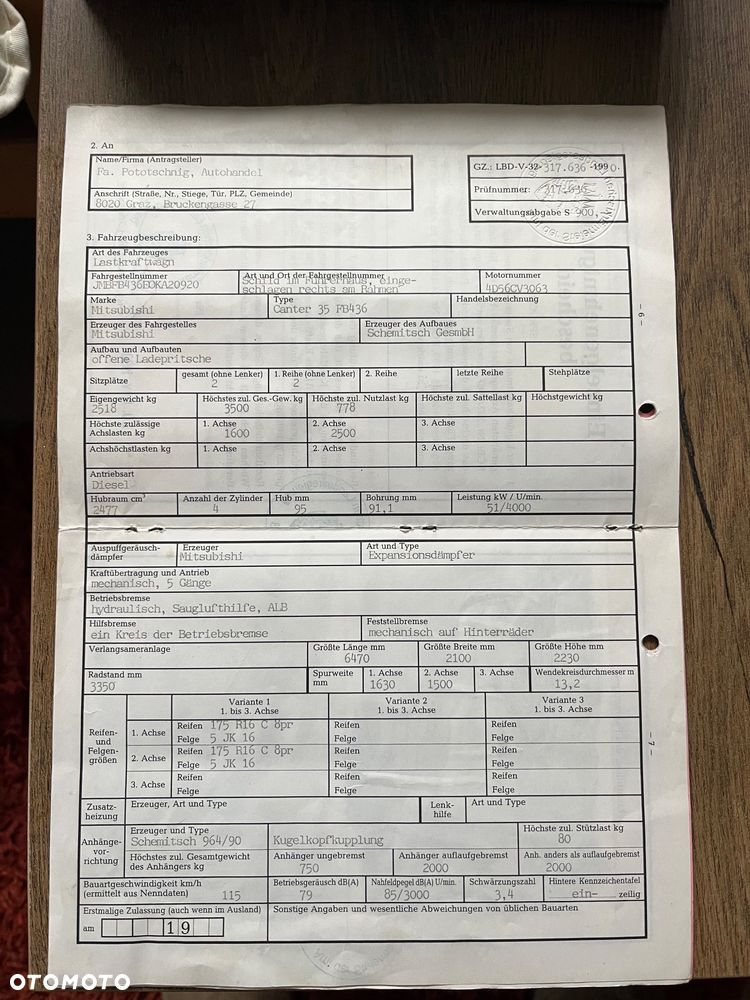 2. An
Name/Firma (Antragsteller)
Fa. Pototschnig, Autohandel
Anschrift (Straße, Nr., Stiege, Tür, PLZ, Gemeinde)
8020 Graz, Bruckengasse 27
GZ.: LBD-V-32-317.636 -1990.
Prüfnummer: 317.636
Verwaltungsabgabe S 900,-
3. Fahrzeugbeschreibung:
Art des Fahrzeuges
Lastkraftwagn
Fahrgestellnummer
JMBFB436EOKA20920
Art und Ort der Fahrgestellnummer
Schild im Führerhaus, einge-
schlagen rechts am Rahmen
Motornummer
4D56CV3063
Marke
Mitsubishi
Type
Canter 35 FB436
Handelsbezeichnung
Erzeuger des Fahrgestelles
Mitsubishi
Erzeuger des Aufbaues
Schemitsch GesmbH
Aufbau und Aufbauten
offene Ladepritsche
Sitzplätze
gesamt (ohne Lenker)
2
1. Reihe (ohne Lenker)
2
2. Reihe
letzte Reihe
Stehplätze
Eigengewicht kg
2518
Höchstes zul. Ges.-Gew. kg
3500
Höchste zul. Nutzlast kg
778
Höchste zul. Sattellast kg
Höchstgewicht kg
Höchste zulässige
Achslasten kg
1. Achse
1600
2. Achse
2500
3. Achse
Achshöchstlasten kg
1. Achse
2. Achse
3. Achse
Antriebsart
Diesel
Hubraum cm³
2477
Anzahl der Zylinder
4
Hub mm
95
Bohrung mm
91,1
Leistung kW / U/min.
51/4000
- 6 -
Auspuffgeräusch-
dämpfer
Erzeuger
Mitsubishi
Art und Type
Expansionsdämpfer
Kraftübertragung und Antrieb
mechanisch, 5 Gänge
Betriebsbremse
hydraulisch, Sauglufthilfe, ALB
Hilfsbremse
ein Kreis der Betriebsbremse
Feststellbremse
mechanisch auf Hinterräder
Verlangsameranlage
Größte Länge mm
6470
Größte Breite mm
2100
Größte Höhe mm
2230
Radstand mm
3350
Spurweite
mm
1. Achse
1630
2. Achse
1500
3. Achse
Wendekreisdurchmesser m
13,2
Reifen-
und
Felgen-
größen
Variante 1
1. bis 3. Achse
Variante 2
1. bis 3. Achse
Variante 3
1. bis 3. Achse
1. Achse
Reifen 175 R16 C 8pr
Felge 5 JK 16
Reifen
Felge
Reifen
Felge
2. Achse
Reifen 175 R16 C 8pr
Felge 5 JK 16
Reifen
Felge
Reifen
Felge
3. Achse
Reifen
Felge
Reifen
Felge
Reifen
Felge
- 7 -
Zusatz-
heizung
Erzeuger, Art und Type
Lenk-
hilfe
Art und Type
Anhänge-
vor-
richtung
Erzeuger und Type
Schemitsch 964/90
Kugelkopfkupplung
Höchste zul. Stützlast kg
80
Höchstes zul. Gesamtgewicht
des Anhängers kg
Anhänger ungebremst
750
Anhänger auflaufgebremst
2000
Anh. anders als auflaufgebremst
2000
Bauartgeschwindigkeit km/h
(ermittelt aus Nenndaten) 115
Betriebsgeräusch dB(A)
79
Nahfeldpegel dB(A) U/min.
85/3000
Schwärzungszahl
3,4
Hintere Kennzeichentafel
ein- zeilig
Erstmalige Zulassung (auch wenn im Ausland)
am 19
Sonstige Angaben und wesentliche Abweichungen von üblichen Bauarten
OTOMOTO